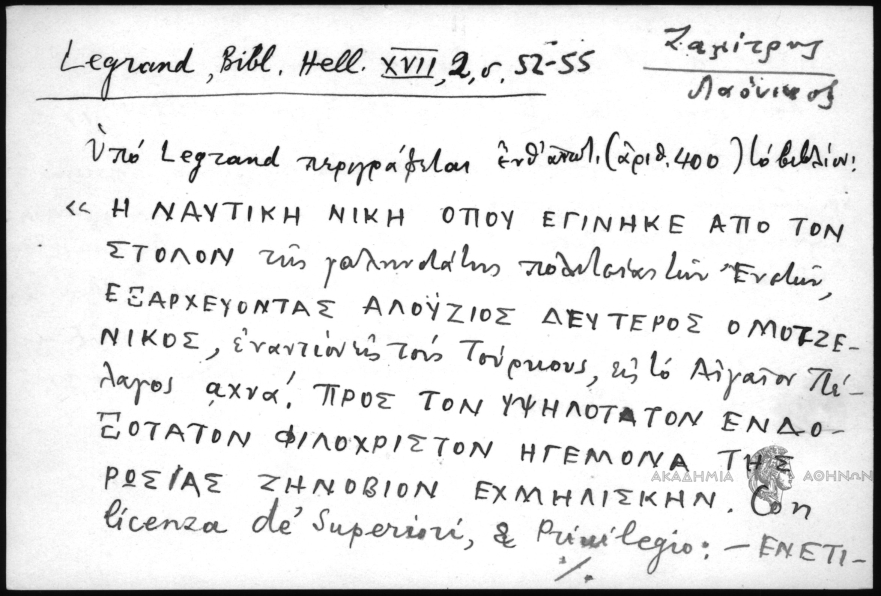 Legrand, Bibl. Hell. XVII, 2, σ. 52-55
Ζαμίτρης
Λαόνικος
Ὑπό Legrand περιγράφεται ἐνθ' ἀνωτ. (ἀριθ. 400) τό βιβλίον:
« Η ΝΑΥΤΙΚΗ ΝΙΚΗ ΟΠΟΥ ΕΓΙΝΗΚΕ ΑΠΟ ΤΟΝ
ΣΤΟΛΟΝ τῆς γαληνοτάτης πολιτείας τῶν Ἐνετῶν,
ΕΞΑΡΧΕΥΟΝΤΑΣ ΑΛΟΫΖΙΟΣ ΔΕΥΤΕΡΟΣ Ο ΜΟΤΖΕ-
ΝΙΚΟΣ, ἐναντίον εἰς τούς Τούρκους, εἰς τό Αἰγαῖον Πέ-
λαγος αχνα'. ΠΡΟΣ ΤΟΝ ΥΨΗΛΟΤΑΤΟΝ ΕΝΔΟ-
ΞΟΤΑΤΟΝ ΦΙΛΟΧΡΙΣΤΟΝ ΗΓΕΜΟΝΑ ΤΗΣ
ΑΚΑΔΗΜΙΑ ΑΘΗΝΩΝ
ΡΩΣΙΑΣ ΖΗΝΟΒΙΟΝ ΕΧΜΗΛΙΣΚΗΝ. Con
licenza de' Superiori, & Privilegio: — ΕΝΕΤΙ-
./.